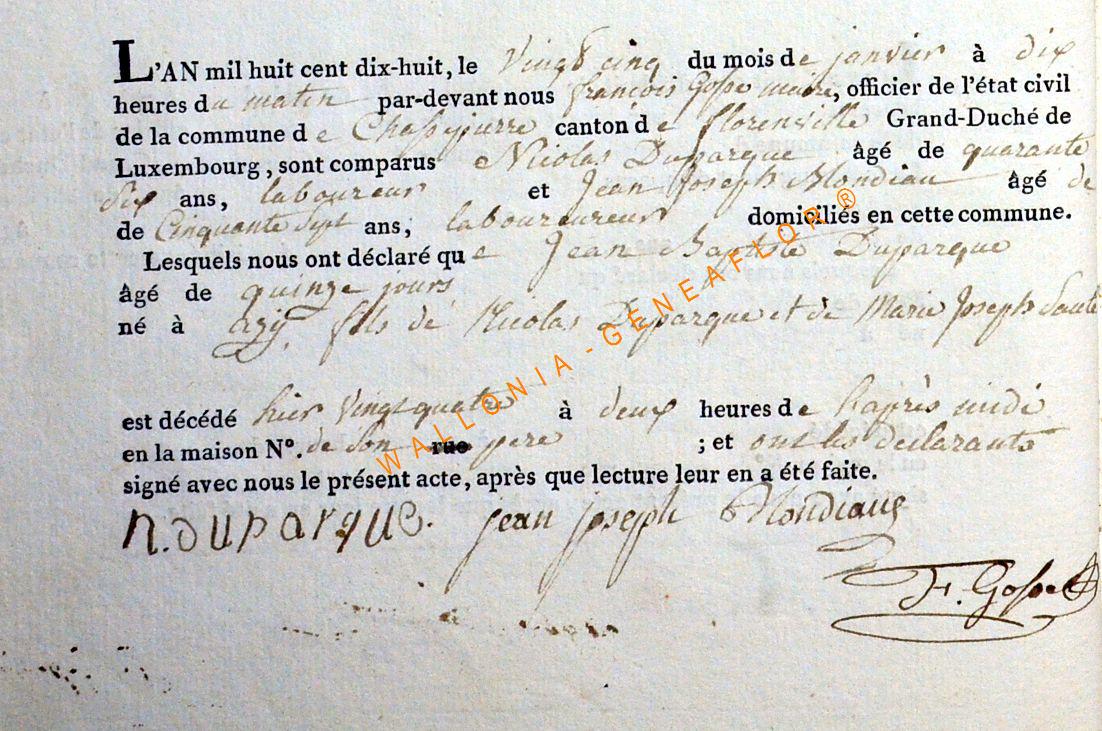 L'AN mil huit cent dix-huit, le Vingt cinq du mois de janvier à dix
heures du matin par-devant nous françois Gosse maire, officier de l'état civil
de la commune de Chassepierre canton de florenville Grand-Duché de
Luxembourg, sont comparus Nicolas Duparque âgé de quarante
Six ans, laboureur et Jean Joseph Blondiau âgé de
de Cinquante Sept ans, laboureureur domiciliés en cette commune.
Lesquels nous ont déclaré que Jean Baptiste Duparque
âgé de quinze jours
né à azy, fils de Nicolas Duparque et de Marie Joseph
est décédé hier Vingt quatre à deux heures de l'après midi
en la maison N°. de Son rue pere ; et ont les déclarants
signé avec nous le présent acte, après que lecture leur en a été faite.
n. duparque. jean joseph Blondiaux
F. Gosse
WALLONIA - GENEAFLOR ®